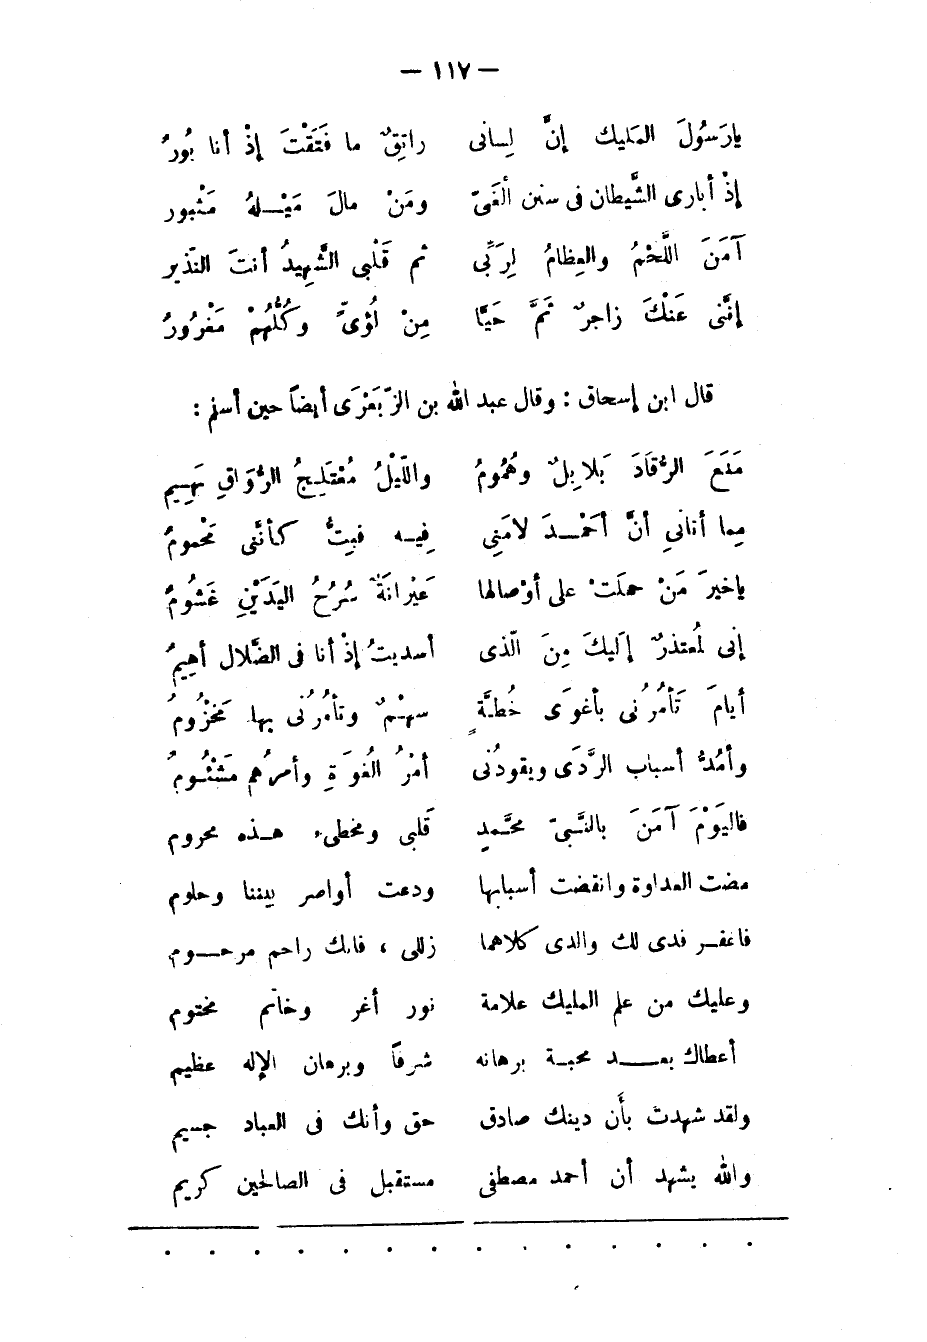 — ١١٧ —
يارَسُولَ المَليك إنَّ لِسانى راتِقٌ ما فَتَقْتَ إذْ أنا بُورُ
إذْ أبارى الشَّيطان فى سنن ألغَىّ ومَنْ مالَ مَيْـلهُ مَثْبور
آمَنَ اللَّحْمُ والعِظامُ لِرَبِّى ثم قَلْبى الشَّهِيدُ أنتَ النَّذير
إنَّنى عَنْكَ زاجرٌ ثَمَّ حَيًّا مِنْ لُؤىٍّ وكُلُّهُمْ مَغْرُورُ
قال ابن إسحاق : وقال عبد الله بن الزّبَعْرَى أيضاً حين أسلم :
مَنَعَ الرُّقادَ بَلابِلٌ وهُمُومُ واللَّيْلُ مُعْتَلِجُ الرُّوَاقِ بَهِيم
مِما أتانى أنَّ أحَمْـدَ لامَنِى فِيـه فبِتُّ كأنَّنى مَحْمومُ
ياخيرَ مَنْ حملَتْ على أوْصالها عَيْرانَةٌ سُرُحُ اليَدَيْنِ غَشُومُ
إنى لمُعتذرٌ إلَيكَ مِنَ الّذى أسديتُ إذْ أنا فى الضَّلال أهِيمُ
أيامَ تَأمُرُنى بأغوَى خُطةٍَّ سهْمٌ وتأمُرُنى بها مَخْزُومُ
وأمُدُّ أسباب الرَّدَى ويقودُنى أمْرُ الغُوَاةِ وأمرُهم مَشْئُومُ
فاليَوْمَ آمَنَ بالنَّبىّ محَّمدٍ قَلبى ومخطىء هـذه محروم
مضت العداوة وانقضت أسبابها ودعت أواصر بيننا وحلوم
فاغفـر فدى لك والدى كلاهما زللى ، فانك راحم مرحـوم
وعليك من علم المليك علامة نور أغر وخاتم مختوم
أعطاك بعـد محبة برهانه شرفاً وبرهان الإله عظيم
ولقد شهدت بأن دينك صادق حق وأنك فى العباد جسيم
والله يشهد أن أحمد مصطفى مستقبل فى الصالحين كريم